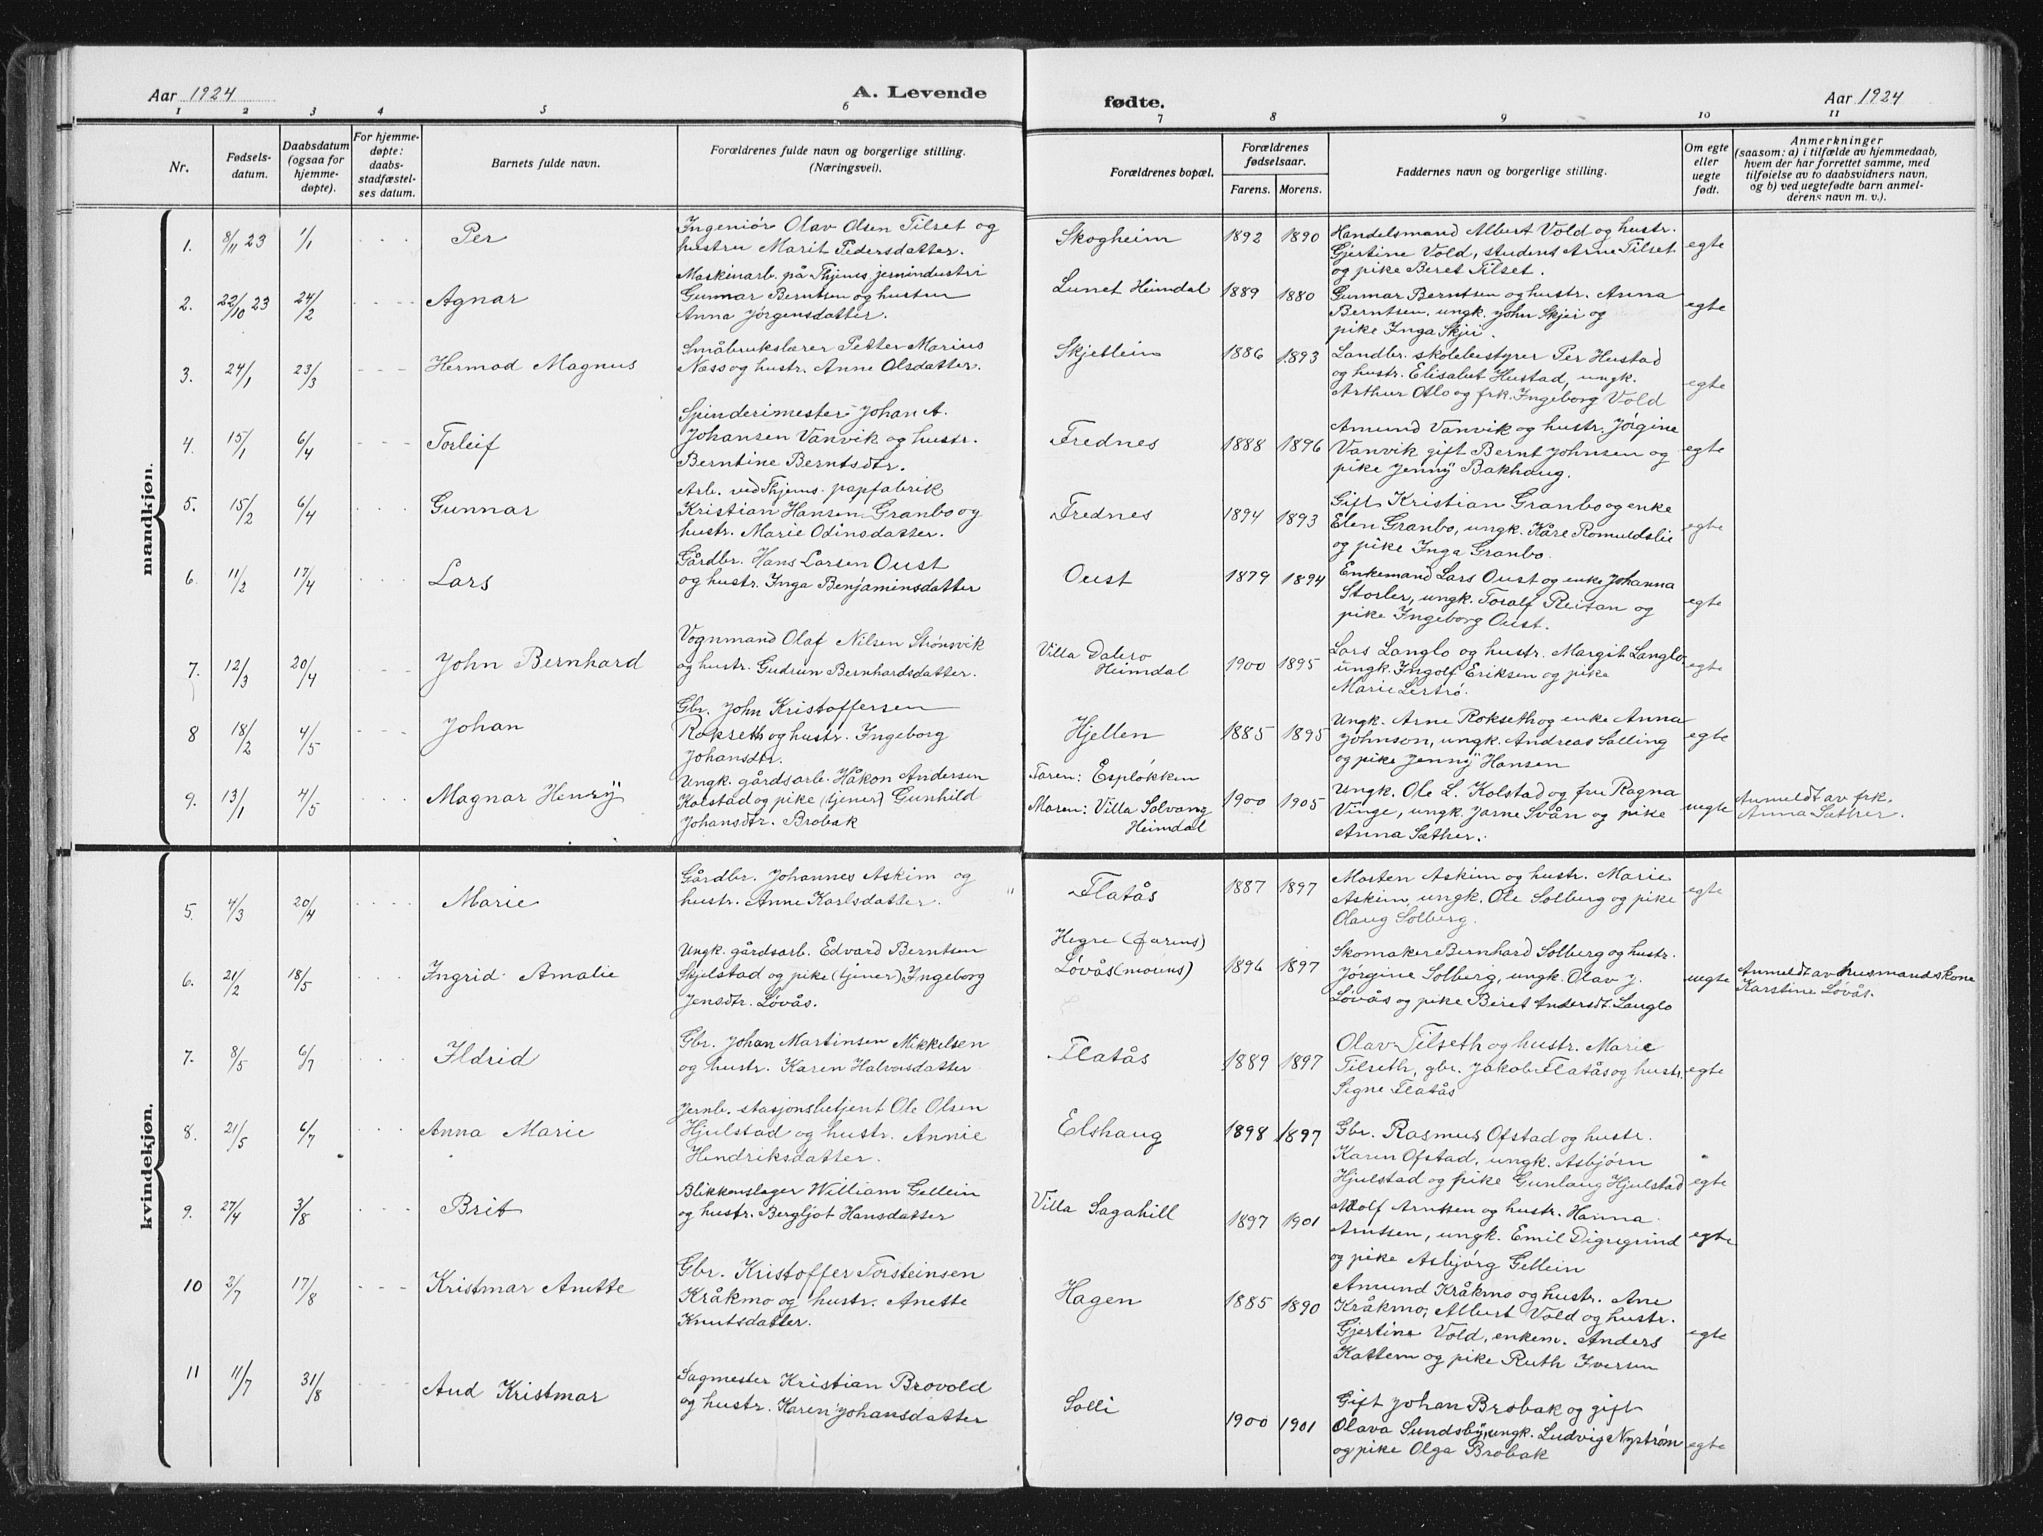 Aar 1924
A. Levende
fødte.
Aar 1924
1 2 3 4 5 6 7 8 9 10 11
Nr.
Fødsels-
datum.
Daabsdatum
(ogsaa for
hjemme-
døpte).
For hjemme-
døpte:
daabs-
stadfæstel-
ses datum.
Barnets fulde navn.
Forældrenes fulde navn og borgerlige stilling.
(Næringsvei).
Forældrenes bopæl.
Forældrenes
fødselsaar.
Farens. Morens.
Faddernes navn og borgerlige stilling.
Om egte
eller
uegte
født.
Anmerkninger
(saasom: a) i tilfælde av hjemmedaab,
hvem der har forrettet samme, med
tilføielse av to daabsvidners navn,
og b) ved uegtefødte barn anmel-
derens navn m. v.).
mandkjøn.
1. 8/11 23 1/1 Per
Ingeniør Olav Olsen Tilset og
hustru Marit Pedersdatter.
Skogheim 1892 1890
Handelsmand Albert Vold og hustr.
Gjertine Vold, student Arne Tilset
og pike Beret Tilset.
egte
2. 22/10 23 24/2 Agnar
Maskinarb. på Thjems jernindustri
Gunnar Berntsen og hustru
Anna Jørgensdatter.
Lunet Heimdal 1889 1880
Gunnar Berntsen og hustr. Anna
Berntsen, ungk. John Skjei og
pike Inga Skjei.
egte
3. 24/1 23/3 Hermod Magnus
Småbrukslærer Petter Marius
Næss og hustr. Anne Olsdatter.
Skjetlein 1886 1893
Landbr. skolebestyrer Per Hustad
og hustr. Elisabet Hustad, ungk.
Arthur Olo og frk. Ingeborg Vold
egte
4. 15/1 6/4 Torleif
Spinderimester Johan A.
Johansen Vanvik og hustr.
Berntine Berntsdtr.
Frednes 1888 1896
Amund Vanvik og hustr. Jørgine
Vanvik gift Bernt Johnsen og
pike Jenny Bakhaug.
egte
5. 15/2 6/4 Gunnar
Arb. ved Thjems papfabrik
Kristian Hansen Granbo og
hustr. Marie Odinsdatter.
Frednes 1894 1893
Gift Kristian Granbo og enke
Elen Granbo, ungk. Kåre Romuldslie
og pike Inga Granbo.
egte
6. 11/2 17/4 Lars
Gårdbr. Hans Larsen Oust
og hustr. Inga Benjaminsdatter
Oust 1879 1894
Enkemand Lars Oust og enke Johanna
Storler, ungk. Toralf Reitan og
pike Ingeborg Oust.
egte
7. 12/3 20/4 John Bernhard
Vognmand Olaf Nilsen Strønsvik
og hustr. Gudrun Bernhardsdatter.
Villa Dalero
Heimdal 1900 1895
Lars Langlo og hustr. Margit Langlo
ungk. Ingolf Eriksen og pike
Marie Lertrø.
egte
8 18/2 4/5 Johan
Gbr. John Kristoffersen
Rokseth og hustr. Ingeborg
Johansdtr.
Hjellen 1885 1895
Ungk. Arne Rokseth og enke Anna
Johnson, ungk. Andreas Salling
og pike Jenny Hansen
egte
9. 13/1 4/5 Magnar Henry
Ungk. gårdsarb. Håkon Andersen
Kolstad og pike (tjener) Gunhild
Johansdtr. Brobak
Faren: Espløkken
Moren: Villa Solvang
Heimdal 1900 1905
Ungk. Ole L. Kolstad og fru Ragna
Vinge, ungk. Jarne Svån og pike
Anna Sæther.
uegte
Anmeldt av frk.
Anna Sæther.
kvindekjøn.
5. 4/3 20/4 Marie
Gårdbr. Johannes Askim og
hustr. Anne Karlsdatter.
Flatås 1887 1897
Morten Askim og hustr. Marie
Askim, ungk. Ole Solberg og pike
Olaug Solberg.
egte
6. 21/2 18/5 Ingrid Amalie
Ungk. gårdsarb. Edvard Berntsen
Skjelstad og pike (tjener) Ingeborg
Jensdtr. Løvås.
Hegre (farens)
Løvås (morens) 1896 1897
Skomaker Bernhard Solberg og hustr.
Jørgine Solberg, ungk. Olav J.
Løvås og pike Beret Andersdt. Langlo
uegte
Anmeldt av husmandskone
Karstine Løvås.
7. 8/5 6/7 Ildrid
Gbr. Johan Martinsen Mikkelsen
og hustr. Karen Halvorsdatter
Flatås 1889 1897
Olav Tilseth og hustr. Marie
Tilseth, gbr. Jakob Flatås og hustr.
Signe Flatås
egte
8. 21/5 6/7 Anna Marie
Jernb. stasjonsbetjent Ole Olsen
Hjulstad og hustr. Annie
Hendriksdatter.
Elshaug 1898 1897
Gbr. Rasmus Ofstad og hustr.
Karen Ofstad, ungk. Asbjørn
Hjulstad og pike Gunlaug Hjulstad
egte
9. 27/4 3/8 Brit
Blikkenslager William Gellein
og hustr. Bergljot Hansdatter
Villa Sagahill 1897 1901
Adolf Arntsen og hustr. Hanna
Arntsen, ungk. Emil Digregrind
og pike Asbjørg Gellein
egte
10 2/7 17/8 Kristmar Anette
Gbr. Kristoffer Torsteinsen
Kråkmo og hustr. Anette
Knutsdatter.
Hagen 1885 1890
Amund Kråkmo og hustr. Ane
Kråkmo, Albert Vold og hustr.
Gjertine Vold, enkem. Anders
Kattem og pike Ruth Iversen
egte
11 11/7 31/8 Aud Kristmar
Sagmester Kristian Brovold
og hustr. Karen Johansdatter
Solli 1900 1901
Gift Johan Brobak og gift
Olava Sundsby, ungk. Ludvig Nystrøm
og pike Olga Brobak
egte